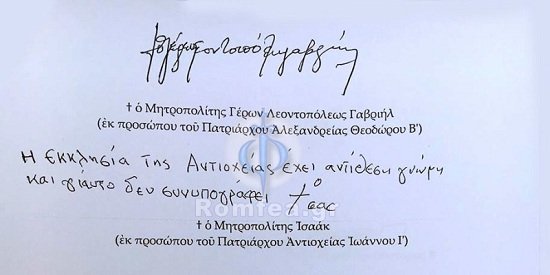 † ὁ Μητροπολίτης Γέρων Λεοντοπόλεως Γαβριήλ
(ἐκ προσώπου τοῦ Πατριάρχου Ἀλεξανδρείας Θεοδώρου Β')
Η Εκκλησία της Αντιοχείας έχει αντίθεση γνώμη
και γιαυτο δεν συνυπογραφει
Romfea.gr
† ὁ Μητροπολίτης Ἰσαάκ
(ἐκ προσώπου τοῦ Πατριάρχου Ἀντιοχείας Ἰωάννου Ι')